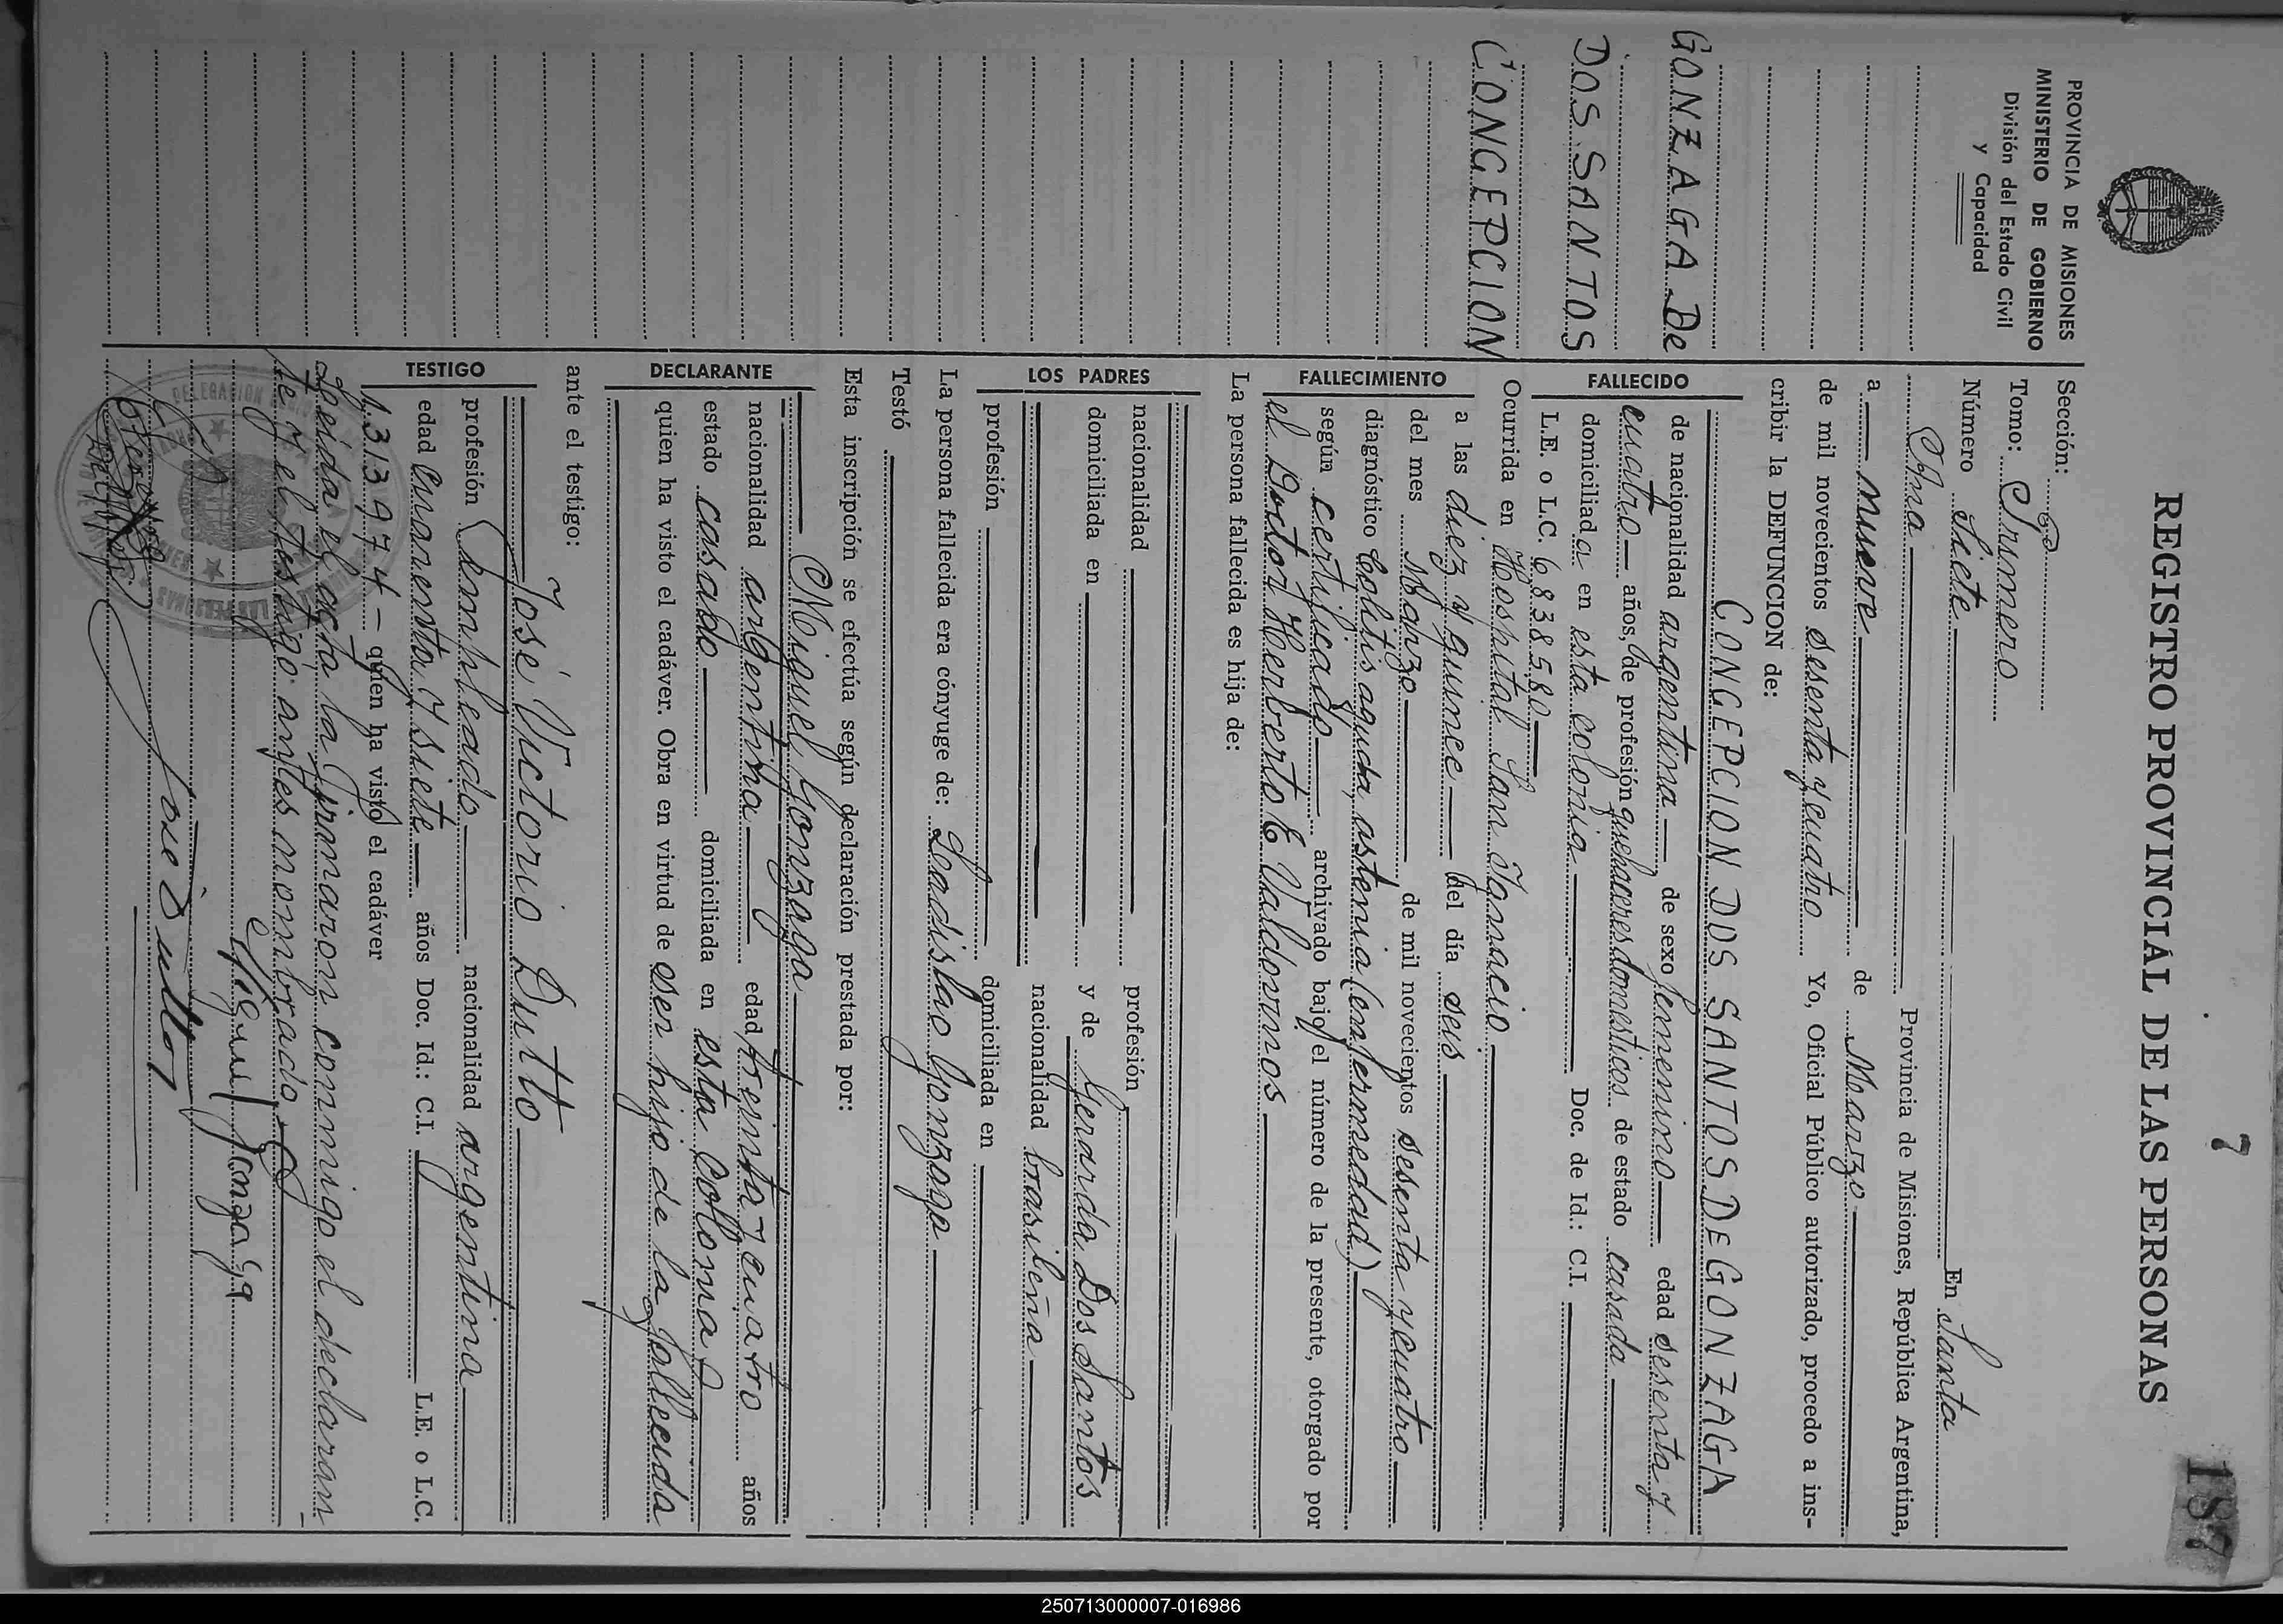 7
187
REGISTRO PROVINCIAL DE LAS PERSONAS
PROVINCIA DE MISIONES
MINISTERIO DE GOBIERNO
División del Estado Civil
y Capacidad
GONZAGA De
DOS SANTOS
CONCEPCION
Sección: 6a
Tomo: Primero
Número Siete En Santa
Ana Provincia de Misiones, República Argentina,
a nueve de Marzo
de mil novecientos sesenta y cuatro Yo, Oficial Público autorizado, procedo a ins-
cribir la DEFUNCION de:
FALLECIDO
CONCEPCION DOS SANTOS DE GONZAGA
de nacionalidad argentina de sexo femenino edad sesenta y
cuatro años, de profesión quehaceres domesticos de estado casada
domiciliada en esta colonia Doc. de Id.: C.I.
L.E. o L.C. 6838580
FALLECIMIENTO
Ocurrida en Hospital San Ignacio
a las diez y quince del día seis
del mes Marzo de mil novecientos sesenta y cuatro
diagnóstico Colitis aguda, astenia (enfermedad)
según certificado archivado bajo el número de la presente, otorgado por
el Doctor Herberto E Valdovinos
La persona fallecida es hija de:
LOS PADRES
nacionalidad profesión
domiciliada en y de Gerarda Dos Santos
nacionalidad brasileña
profesión domiciliada en
La persona fallecida era cónyuge de: Ladislao Gonzaga
Testó
Esta inscripción se efectúa según declaración prestada por:
DECLARANTE
Miguel Gonzaga
nacionalidad argentina edad treinta y cuatro años
estado casado domiciliada en esta Colonia
quien ha visto el cadáver. Obra en virtud de ser hijo de la fallecida
ante el testigo:
TESTIGO
José Victorio Dutto
profesión Empleado nacionalidad argentina
edad cuarenta y siete años Doc. Id.: C.I. L.E. o L.C.
1.313974 quien ha visto el cadáver
Leída el acta la firmaron conmigo el declaran-
te y el testigo antes nombrado
Miguel Gonzaga
José Dutto
250713000007-016986